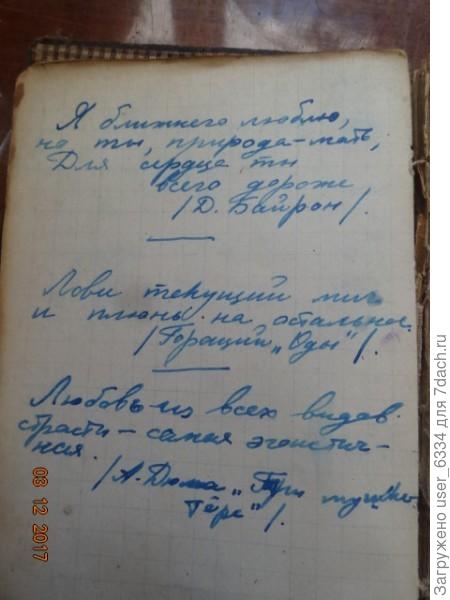 Я ближнего люблю,
но ты, природа-мать,
Для сердца ты
всего дороже
/Д. Байрон/.
Лови текущий миг
и плюнь на остальное.
/Гораций „Оды"/.
Любовь-из всех видов
страсти – самая эгоистич-
ная.
/А. Дюма „Три мушке-
тёра"/.
03 12 2017
Загружено user_6334 для 7dach.ru